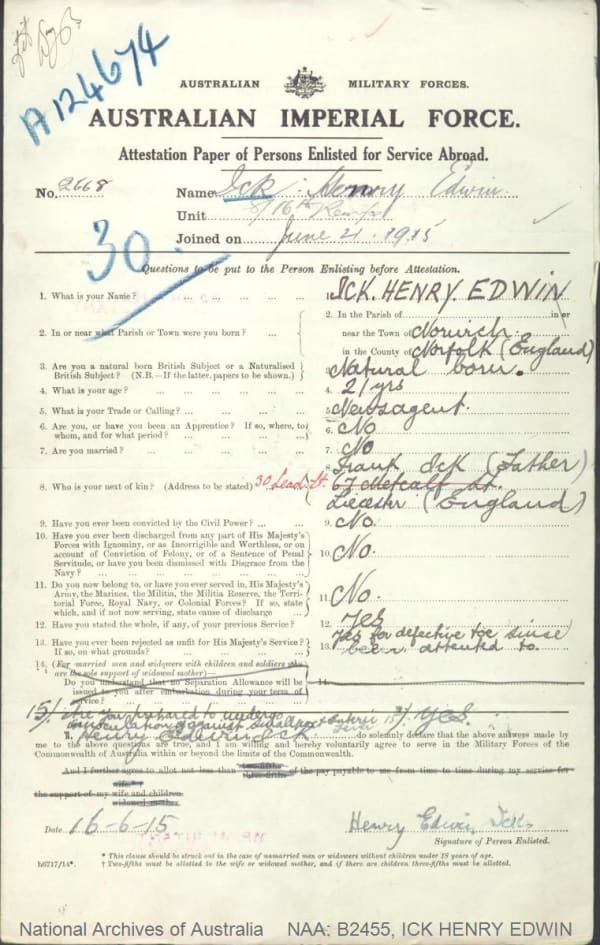 A124674
AUSTRALIAN MILITARY FORCES.
AUSTRALIAN IMPERIAL FORCE.
Attestation Paper of Persons Enlisted for Service Abroad.
No. 2668 Name Ick Henry Edwin
Unit 8/16th Reinf
Joined on June 21. 1915
30.
Questions to be put to the Person Enlisting before Attestation.
1. What is your Name? ... 1. ICK. HENRY. EDWIN
2. In or near what Parish or Town were you born? ... 2. In the Parish of in or
near the Town of Norwich.
in the County of Norfolk (England)
3. Are you a natural born British Subject or a Naturalised
British Subject? (N.B.—If the latter, papers to be shown.) 3. Natural born.
4. What is your age? ... 4. 21 yrs
5. What is your Trade or Calling? ... 5. Newsagent.
6. Are you, or have you been an Apprentice? If so, where, to
whom, and for what period? ... 6. No
7. Are you married? ... 7. No
8. Who is your next of kin? (Address to be stated) 30 Lead St. 8. Frank Ick (Father)
67 Metcalf St.
Leicester (England)
9. Have you ever been convicted by the Civil Power? ... 9. No.
10. Have you ever been discharged from any part of His Majesty's
Forces with Ignominy, or as Incorrigible and Worthless, or on
account of Conviction of Felony, or of a Sentence of Penal
Servitude, or have you been dismissed with Disgrace from the
Navy? ... 10. No.
11. Do you now belong to, or have you ever served in, His Majesty's
Army, the Marines, the Militia, the Militia Reserve, the Terri-
torial Force, Royal Navy, or Colonial Forces? If so, state
which, and if not now serving, state cause of discharge ... 11. No.
12. Have you stated the whole, if any, of your previous Service? 12. Yes
13. Have you ever been rejected as unfit for His Majesty's Service?
If so, on what grounds? ... 13. Yes for defective toe since
been attended to.
14. (For married men and widowers with children and soldiers who
are the sole support of widowed mother)—
Do you understand that no Separation Allowance will be
issued to you after embarkation during your term of
service? 14.
15/ Are you prepared to undergo
inoculation against smallpox & enteric fever 15/ Yes.
I, Henry Edwin Ick do solemnly declare that the above answers made by
me to the above questions are true, and I am willing and hereby voluntarily agree to serve in the Military Forces of the
Commonwealth of Australia within or beyond the limits of the Commonwealth.
And I further agree to allot not less than of the pay payable to me from time to time during my service for
the support of my wife and children.
widowed mother.
Date 16-6-15 Henry Edwin Ick
Signature of Person Enlisted.
h6717/14*.
* This clause should be struck out in the case of unmarried men or widowers without children under 18 years of age.
† Two-fifths must be allotted to the wife or widowed mother, and if there are children three-fifths must be allotted.
National Archives of Australia NAA: B2455, ICK HENRY EDWIN